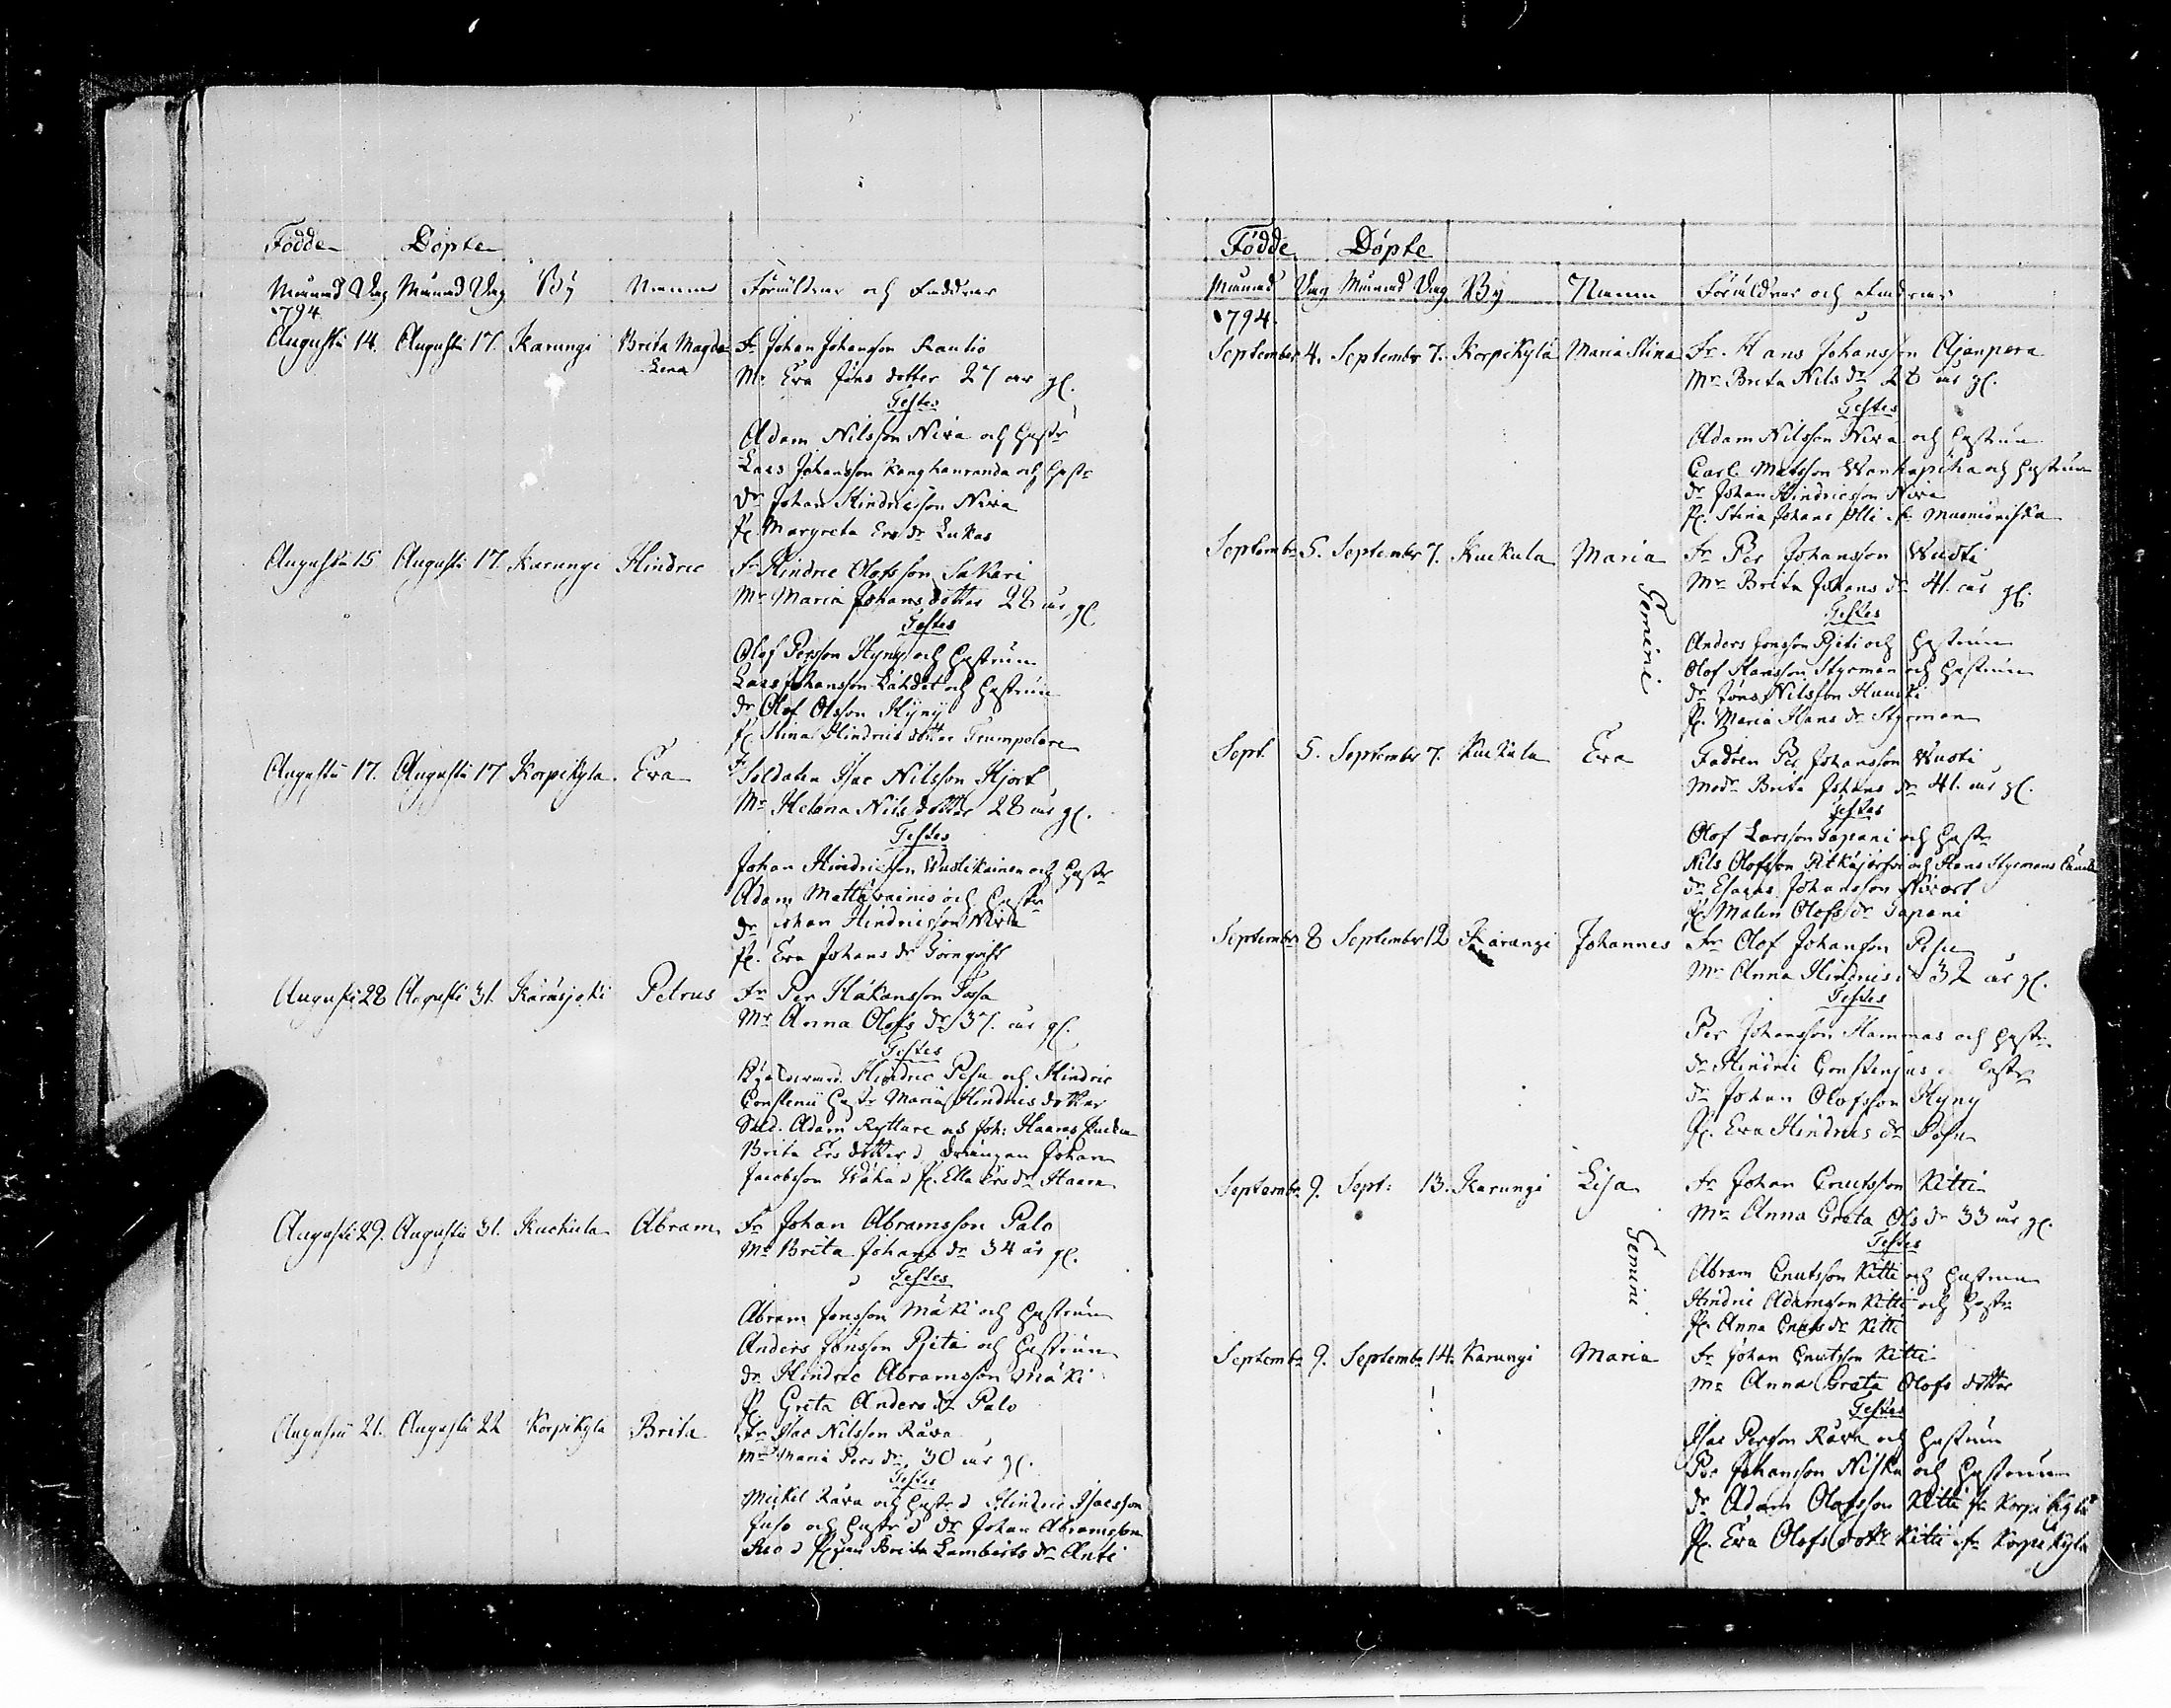 Födde Döpte
Månad Dag Månad Dag By Namn Föräldrar och Faddrar
1794
Augusti 14. Augusti 17. Karungi Brita Magda Fr Johan Johansson Rautio
Lena Mr Eva Jöns dotter 27 år gl.
Testes
Adam Nilsson Niva och Hustr
Lars Johansson Kanghanranda och Hustr
Dr Johan Hindricsson Niva
P. Margreta Ers dr Lukas
Augusti 15 Augusti 17. Karungi Hindric Fr Hindric Olofsson Sakari
Mr Maria Johans dotter 28 år gl
Testes
Olof Persson Hyny och Hustrun
Lars Johansson Lahdet och Hustrun
dr Olof Olsson Hyny
P. Stina Hindrics dotter Trumpolare
Augusti 17. Augusti 17 Korpikyla Eva Fr Soldaten Isac Nilsson Hjort
Mr Helena Nils dotter 28 år gl.
Testes
Johan Hindricsson Wustikainen och Hustr
Adam Mattävainio och Hustr
Dr Johan Hindricsson Niva
P. Eva Johans dr Törnqvist
Augusti 28 Augusti 31. Karäsjoki Petrus Fr Per Håkansson Påssa
Mr Anna Olofs dr 37. år gl.
Testes
Hindric Pesu och Hindric
Constenii Hustr Maria Hindrics dotter
Sold. Adam Ryttare Joh: Haaras Enkan
Brita Ers dotter Drängen Johan
Jacobsson P. Ella Ers dr Haara
Augusti 29. Augusti 31. Kuckula Abram Fr Johan Abramsson Palo
Mr Brita Johans dr 34 år gl.
Testes
Abram Jönsson Mäki och Hustrun
Anders Jönsson Pjeta och Hustrun
Dr Hindric Abramsson Mäki
P Greta Anders dr Palo
Augusti 21. Augusti 22 Korpikyla Brita Fr Isac Nilsson Räva
Mr Maria Pers dr 30 år gl.
Testes
Mickel Räva och Hustr Hindric Isacsson
Juso och Hustr dr Johan Abramsson
Brita Lamberts dr Anti
Födde Döpte
Månad Dag Månad Dag By Namn Föräldrar och Faddrar
1794.
September 4. September 7. Korpikylä Maria Stina Fr. Hans Johansson Ajanpera
Mr Brita Nils dr 28 år gl.
Testes
Adam Nilsson Niva och Hustrun
Carl Matsson Wanhapiha och Hustrun
dr Johan Hindricsson Niva
P. Stina Johans Olli fr Muonioniska
September 5. September 7. Kuckula Maria Fr Per Johansson Wusti
Mr Brita Johans dr 41. år gl.
Gemini
Testes
Anders Jönsson Pjeti och Hustrun
Olof Hansson Styrman och Hustrun
dr Jöns Nilsson
P. Maria Hans dr Styrman
Sept 5. September 7. Kuckula Eva Fadren Per Johansson Wusti
Modr Brita Johans dr 41. år gl.
Testes
Olof Larsson Tapani och Hustr
Nils Olofsson Pitkäjärfvi och Hans Styrmans
dr Johansson
P. Malin Olofs dr Tapani
September 8 September 12 Karungi Johannes Fr Olof Johansson Pesu
Mr Anna Hindrics dr 32 år gl.
Testes
Per Johansson Hammas och Hustr
dr Hindric Constenius Hustr
dr Johan Olofsson Hyny
P. Eva Hindrics dr Pesu
Septembr 9. Sept: 13. Karungi Lisa Fr Johan Cnutsson Kitti
Mr Anna Greta Ols dr 33 år gl.
Gemini
Testes
Abram Cnutsson Kitti och Hustrun
Hindric Adamsson Kitti och Hustr
P. Anna Cnuts dr Kitti
Septembr 9. Septembr 14. Karungi Maria Fr Johan Cnutsson Kitti
Mr Anna Greta Olofs dotter
Testes
Isac Persson Räva och Hustrun
Per Johansson Niska och Hustrun
dr Adam Olofsson Kitti fr Korpikylä
P. Eva Olofs dotr Kitti fr Korpikyla